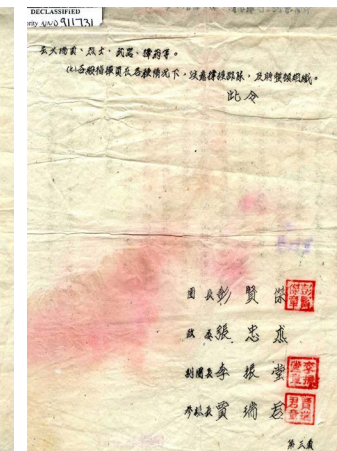 DECLASSIFIED
NND 911731
長火掩員、烈士、武器、彈藥等。
(七)各級指揮員在各種情況下，注意掌握部隊，及時整頓組織。
此令
團長 彭賢傑
政委 張忠杰
副團長 李振堂
參謀長 賈瑞君
第三頁